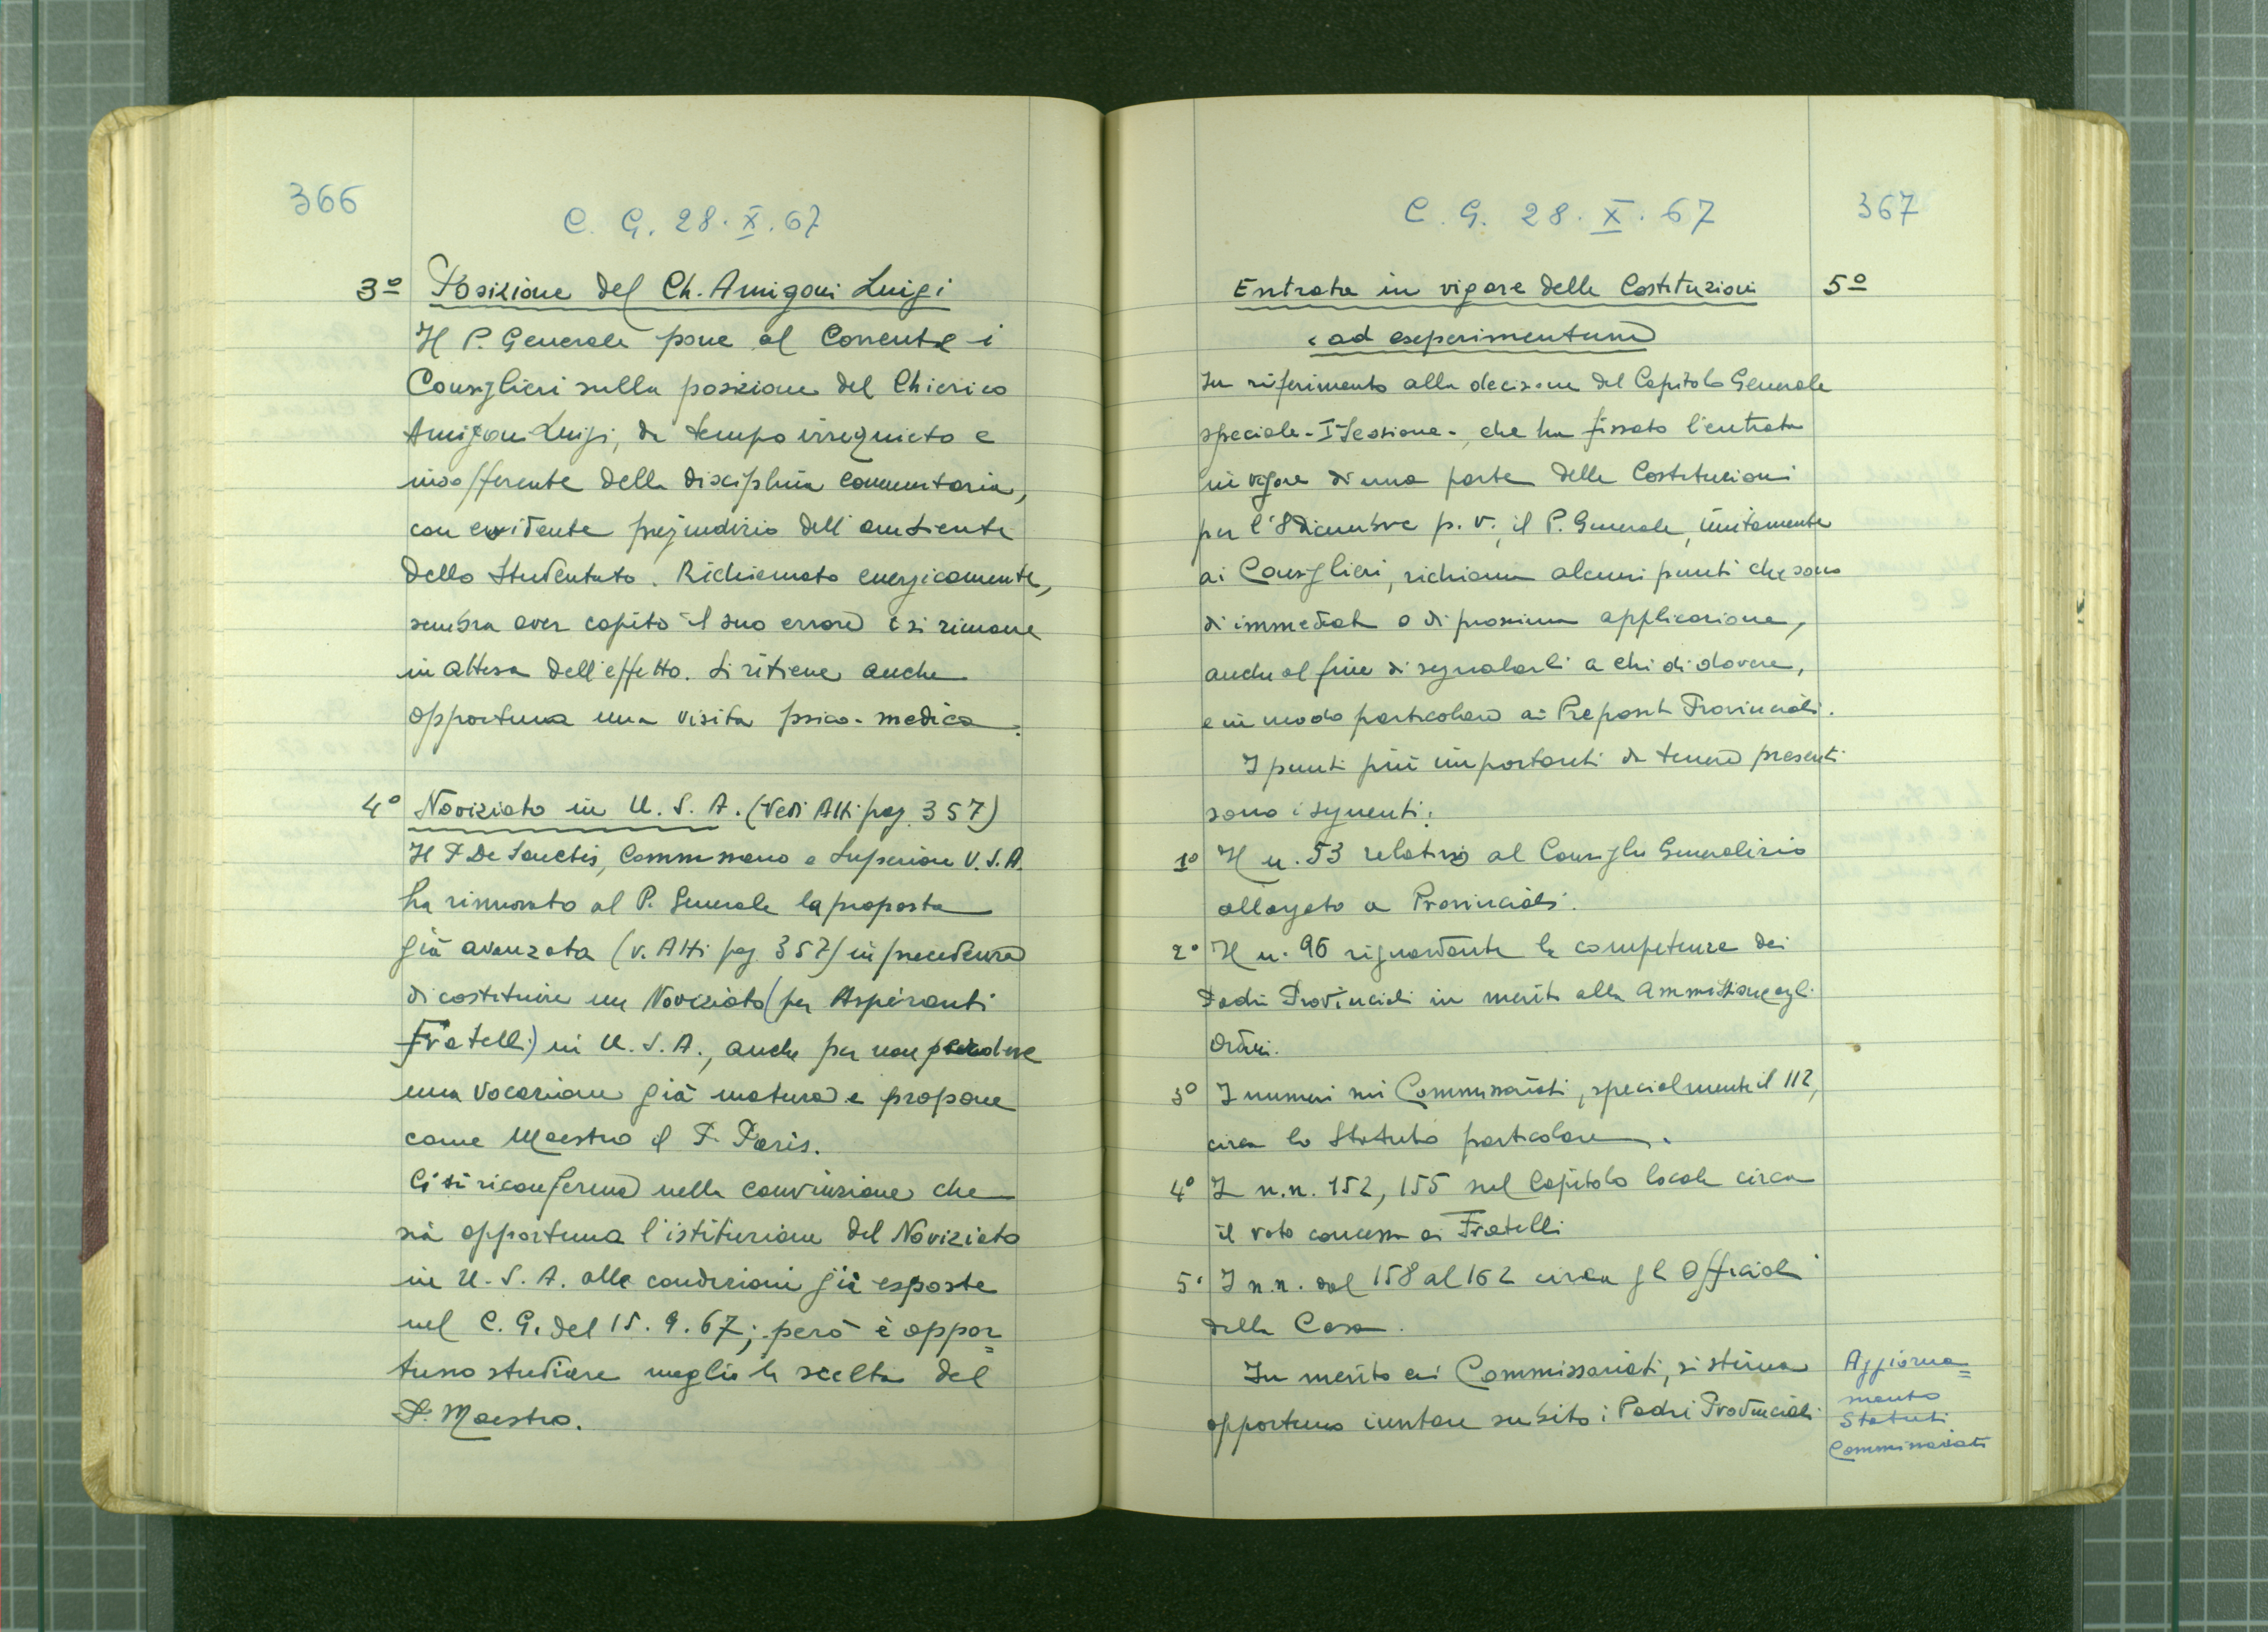 366
C. G. 28. X. 67
3º Posizione del Ch. Amigoni Luigi
Il P. Generale pone al corrente i
Consiglieri sulla posizione del Chierico
Amigoni Luigi, da tempo irrequieto e
insofferente della disciplina comunitaria,
con evidente pregiudizio dell'ambiente
dello Studentato. Richiamato energicamente,
sembra aver capito il suo errore e si rimane
in attesa dell'effetto. Si ritiene anche
opportuna una visita psico-medica.
4º Noviziato in U.S.A. (Vedi Atti pag. 357)
Il P. De Sanctis, Commissario e Superiore U.S.A.
ha rinnovato al P. Generale la proposta
già avanzata (v. Atti pag. 357) in precedenza
di costituire un Noviziato (per Aspiranti
Fratelli) in U.S.A., anche per non perdere
una vocazione già matura e propone
come Maestro il P. Paris.
Ci si riconferma nella convinzione che
sia opportuna l'istituzione del Noviziato
in U.S.A. alle condizioni già esposte
nel C. G. del 15.9.67; però è oppor=
tuno studiare meglio la scelta del
P. Maestro.
C. G. 28. X. 67
367
Entrata in vigore delle Costituzioni 5º
"ad experimentum"
In riferimento alla decisione del Capitolo Generale
speciale - I Sessione -, che ha fissato l'entrata
in vigore di una parte delle Costituzioni
per l'8 dicembre p. v., il P. Generale, unitamente
ai Consiglieri, richiama alcuni punti che sono
di immediata o di prossima applicazione,
anche al fine di segnalarli a chi di dovere,
e in modo particolare ai Preposti Provinciali.
I punti più importanti da tenere presenti
sono i seguenti:
1º Il n. 53 relativo al Consiglio Generalizio
allargato a Provinciali.
2º Il n. 96 riguardante le competenze dei
Padri Provinciali in merito alla ammissione agli
Ordini.
3º I numeri sui Commissariati, specialmente il 112,
circa lo Statuto particolare.
4º I n.n. 152, 155 sul Capitolo locale circa
il voto concesso ai Fratelli
5º I n.n. dal 158 al 162 circa gli Officiali
della Casa.
In merito ai Commissariati, si stima
opportuno invitare subito i Padri Provinciali
Aggiorna=
mento
Statuti
Commissariati